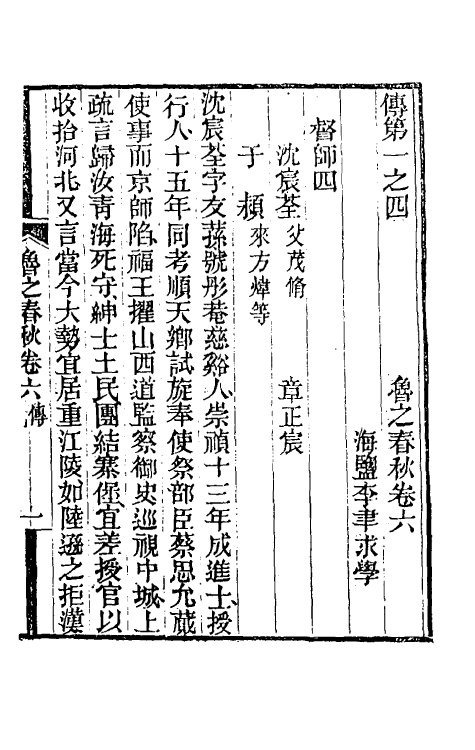 傳第一之四　魯之春秋卷六
海鹽李聿求學
督師四
沈宸荃父茂脩　章正宸
于潁來方煒等
沈宸荃字友蓀號彤菴慈谿人崇禎十三年成進士授
行人十五年同考順天鄉試旋奉使祭部臣蔡思允蕆
使事而京師陷福王擢山西道監察御史巡視中城上
疏言歸汝靑海死守紳士土民團結寨堡宜差授官以
收拾河北又言當今大勢宜居重江陵如陸遜之拒漢
魯之春秋卷六　傳　一